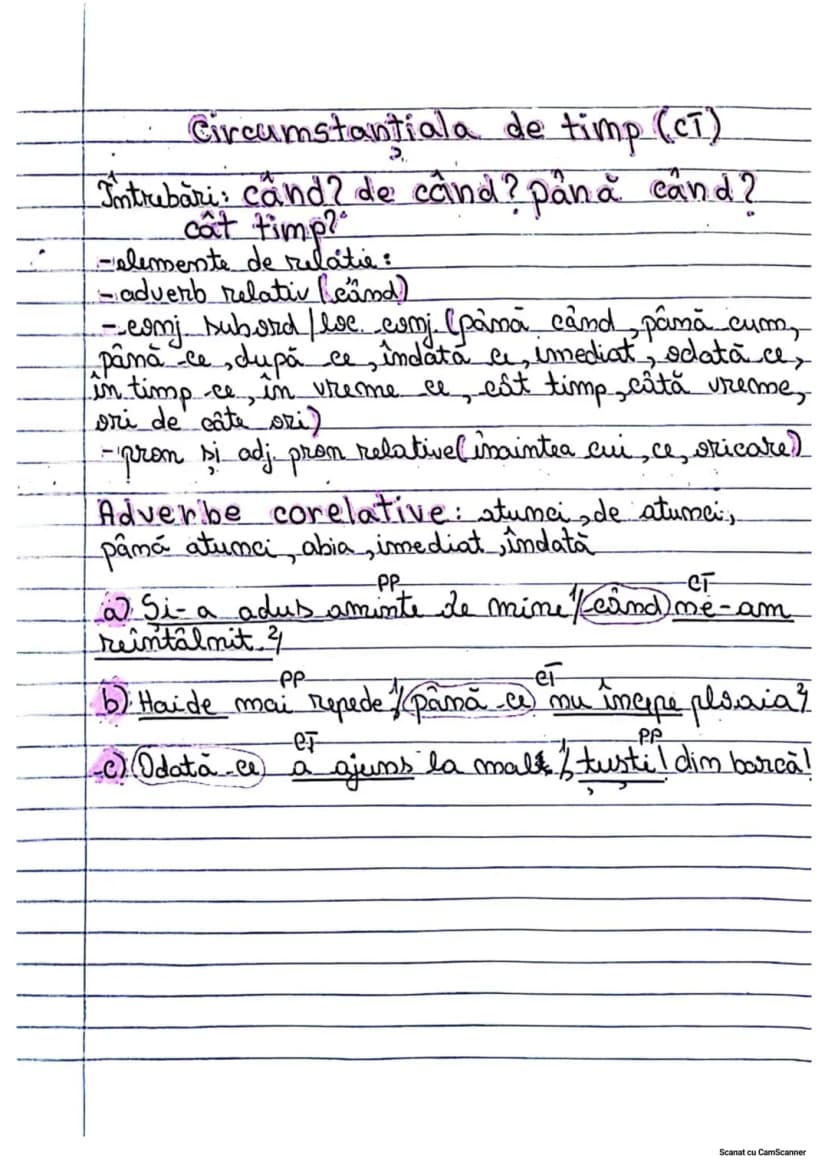 Circumstanțiala de timp (CT)
Întrebări: când? de când? până când?
cât timp?
-elemente de relatie:
-adverb relativ (când)
-conj. subord/loc. conj. (până când, până cum,
până ce, după ce, îndată ce, imediat, odată ce,
în timp ce, în vreme ce, cât timp, câtă vreme,
ori de câte ori)
-pron și adj. pron relative (inaintea cui, ce, oricare)
Adverbe corelative: atunci, de atunci,
până atunci, abia, imediat, îndată
PP CT
a) Si-a adus aminte de mine 1/ când ne-am
reîntâlnit. 2/
PP CT
b) Haide mai repede 1/ până ce nu începe ploaia 2/
CT PP
c) Odată ce a ajuns la mal 1/, țuști! din barcă!
Scanat cu CamScanner